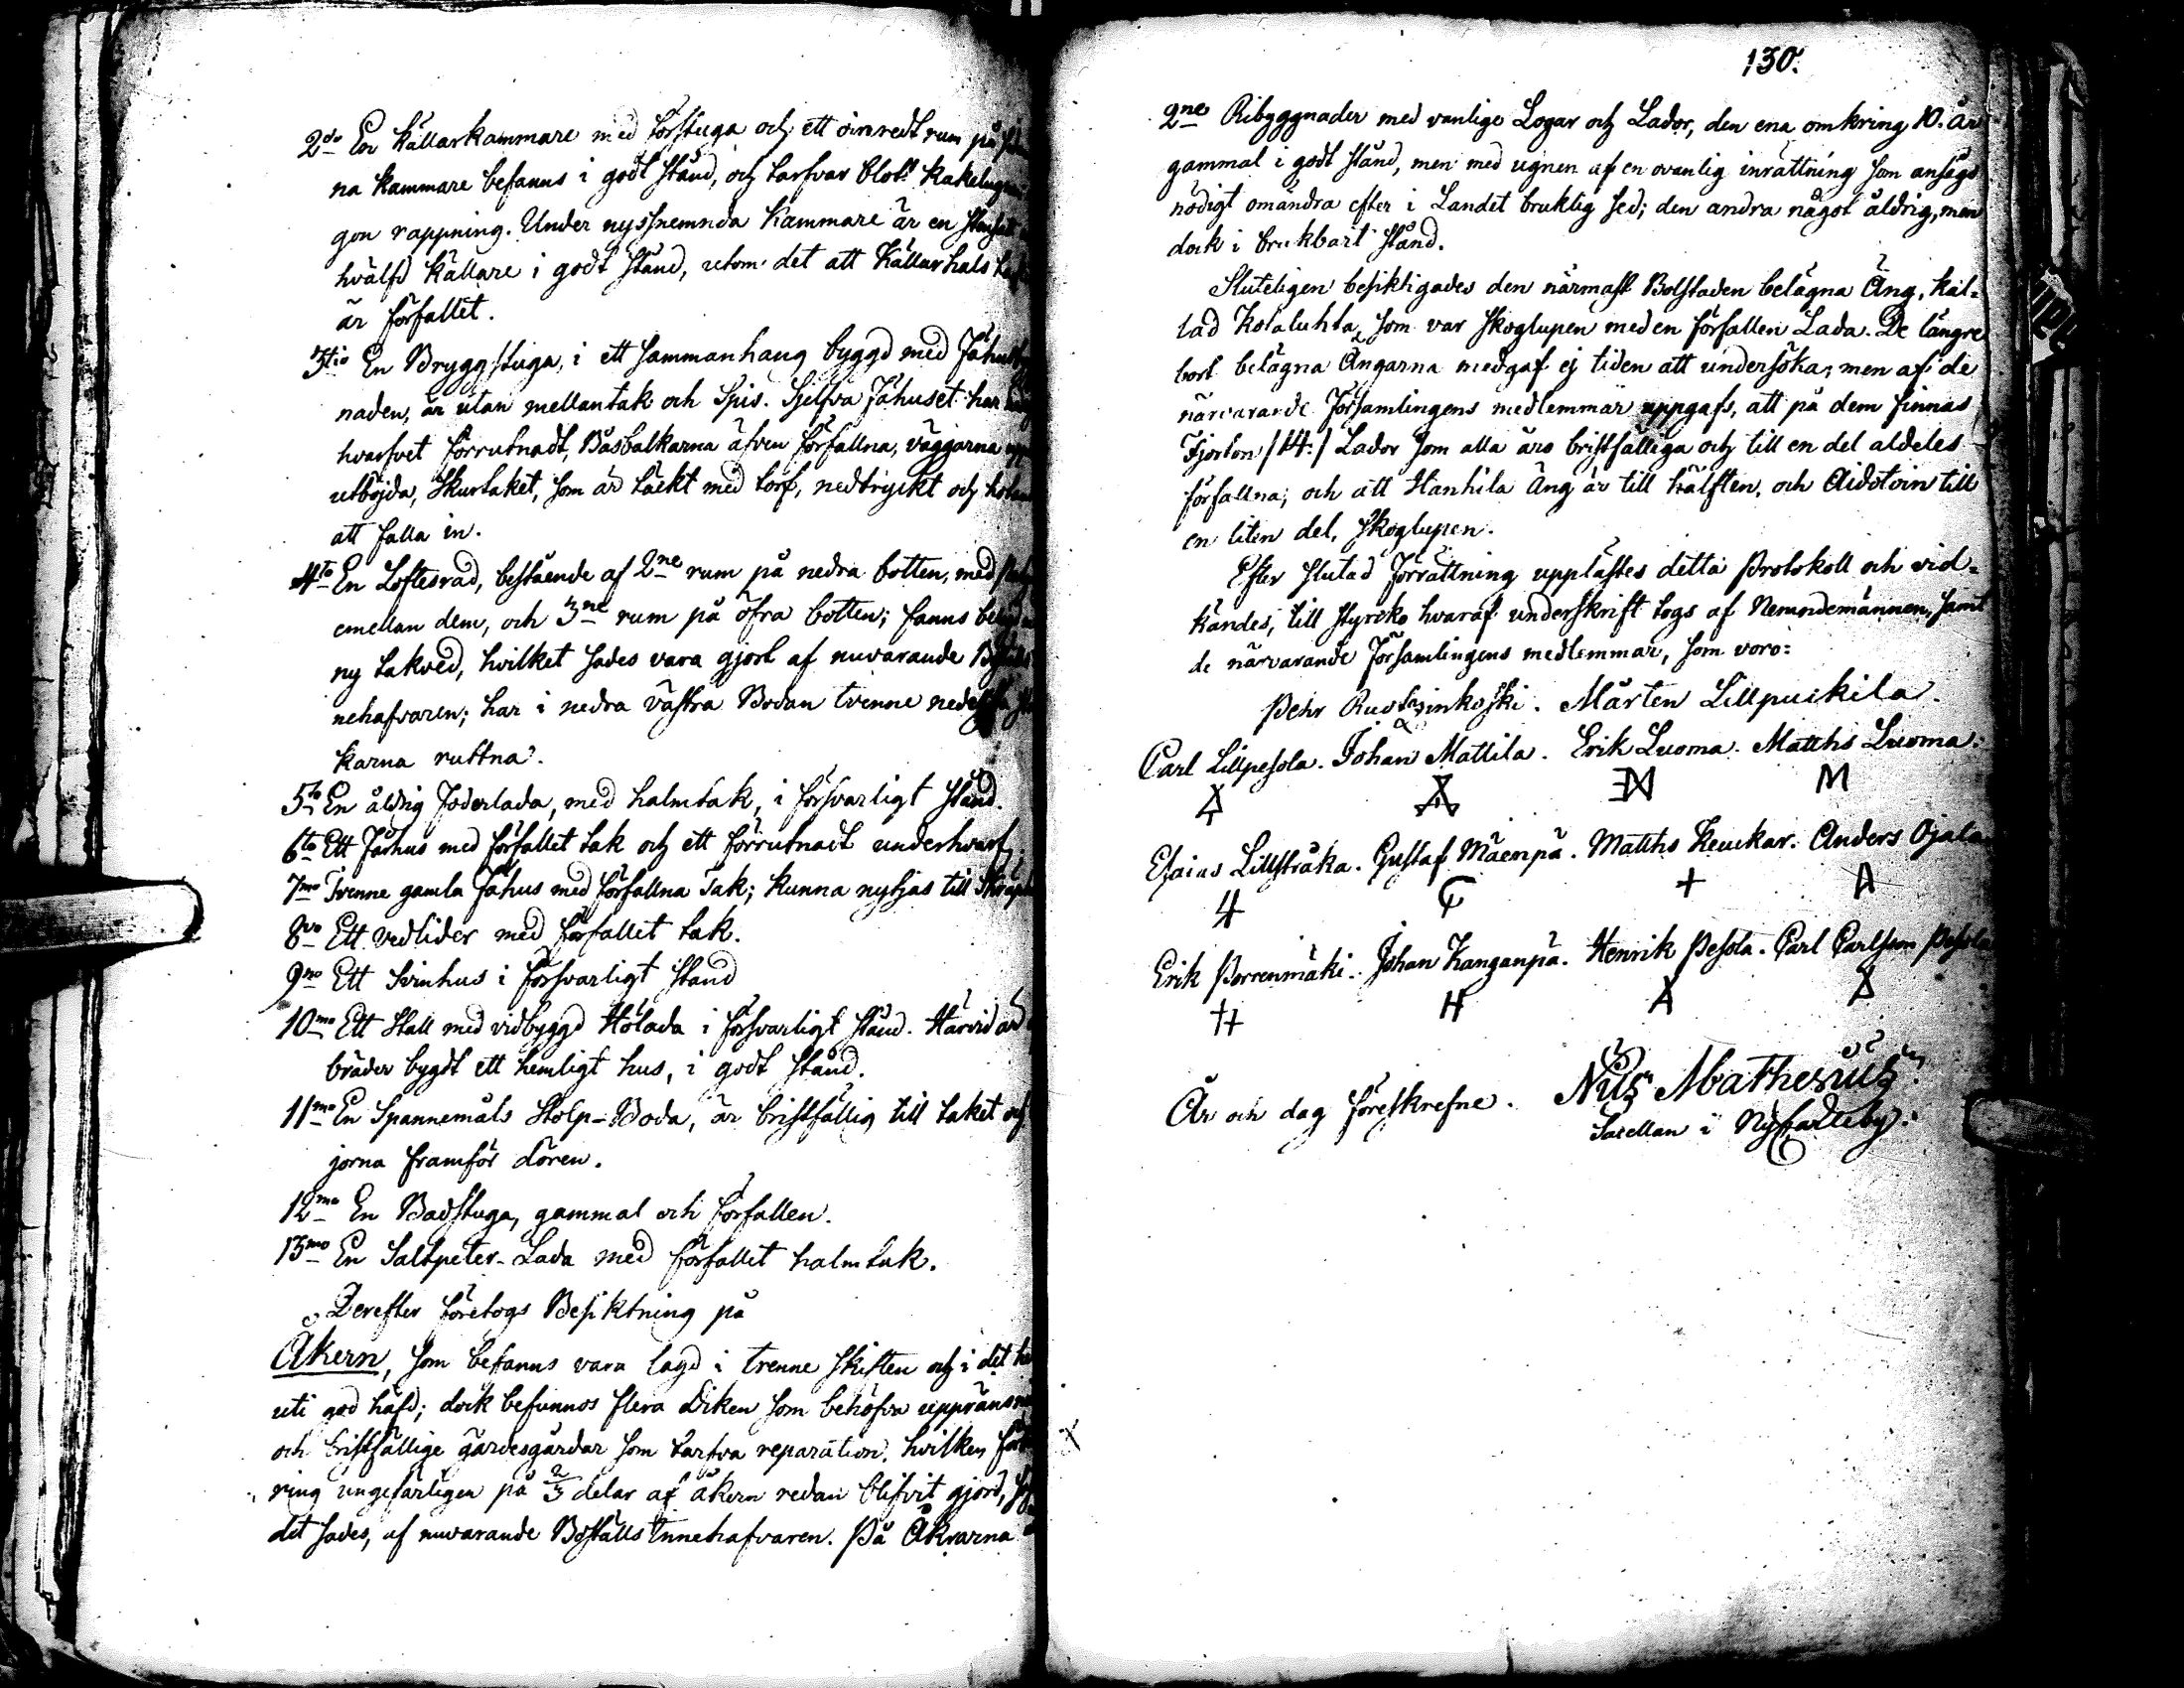 2do En Källarkammare med förstuga och ett oinredt rum på
na Kammare befanns i godt stånd, och tarfvar blott Kakelugnen
gon rappning. Under nyssnemnda Kammare är en
hvälfd Källare i godt stånd, utom det att Källarhals
är förfallet.
3tio En Bryggstuga, i ett sammanhang byggd med Fähus
naden, är utan mellantak och Spis. Sjelfva Fähuset har
hvarfvet förrutnadt, Båsbalkarna äfven förfallna, väggarna
utböjda, Skurtaket, som är täckt med torf, nedtryckt och
att falla in.
4to En Loftesrad, bestående af 2ne rum på nedra botten, med
emellan dem, och 3ne rum på öfra botten; fanns
ny takved, hvilket sades vara gjort af nuvarande
nehafvaren; har i nedra västra Bodan tvenne nedersta
karna ruttna.
5to En åldrig Foderlada, med halmtak, i försvarligt stånd.
6to Ett Fårhus med förfallet tak och ett förrutnadt underhvarf.
7mo Tvenne gamla Fähus med förfallna tak; kunna nyttjas till
8vo Ett Vedlider med förfallet tak.
9no Ett Svinhus i försvarligt stånd
10mo Ett Stall med vidbyggd Hölada i försvarligt stånd. Härvid är
bräder bygdt ett hemligt hus, i godt stånd.
11mo En Spannemåls Stolp-Boda, är bristfällig till taket och
jorna framför dören.
12mo En Badstuga, gammal och förfallen.
13mo En Saltpeter-Lada med förfallet halmtak.
Derefter företogs Besiktning på
Åkern, som befanns vara lagd i trenne skiften och i det
uti god häfd; dock befunnos flera diken som behöfva
och bristfällige gärdesgårdar som tarfva reparation, hvilken
ring ungefärligen på 2/3 delar af åkern redan blifvit gjord,
det sades, af nuvarande Boställs Innehafvaren. På Åkrarna
130.
2ne Ribyggnader med vanlige Logar och Lador, den ena omkring 10. år
gammal i godt stånd, men med ugnen af en ovanlig inrättning som ansågs
nödigt omändra efter i Landet bruklig sed; den andra något åldrig, men
dock i brukbart stånd.
Sluteligen besiktigades den närmast Bolstaden belägna Äng, kal-
lad Kotaluhta, som var skoglupen med en förfallen Lada. De längre
bort belägna Ängarna medgaf ej tiden att undersöka, men af de
närvarande Församlingens medlemmar uppgafs, att på dem finnas
Fjorton /14:/ Lador som alla äro bristfälliga och till en del aldeles
förfallna; och att Hanhila Äng är till hälften, och Aidotoin till
en liten del, skoglupen.
Efter slutad Förrättning upplästes detta Protokoll och vid-
kändes, till styrcko hvaraf underskrift togs af Nemndemännen, samt
de närvarande Församlingens medlemmar, som voro:
Pehr Ruotzinkoski. Mårten Lillpuckila.
Carl Lillpesola. Johan Mattila. Erik Luoma. Matths Luoma.
M
Esaias Lillstråka. Gustaf Mäenpä. Matths Keuckar. Anders Ojala
4 + A
Erik Porrenmäki. Johan Kanganpä. Henrik Pesola. Carl Carlsson Pesola
H A
År och dag föreskrefne. Nils Mathesius
Sacellan i Nykarleby.